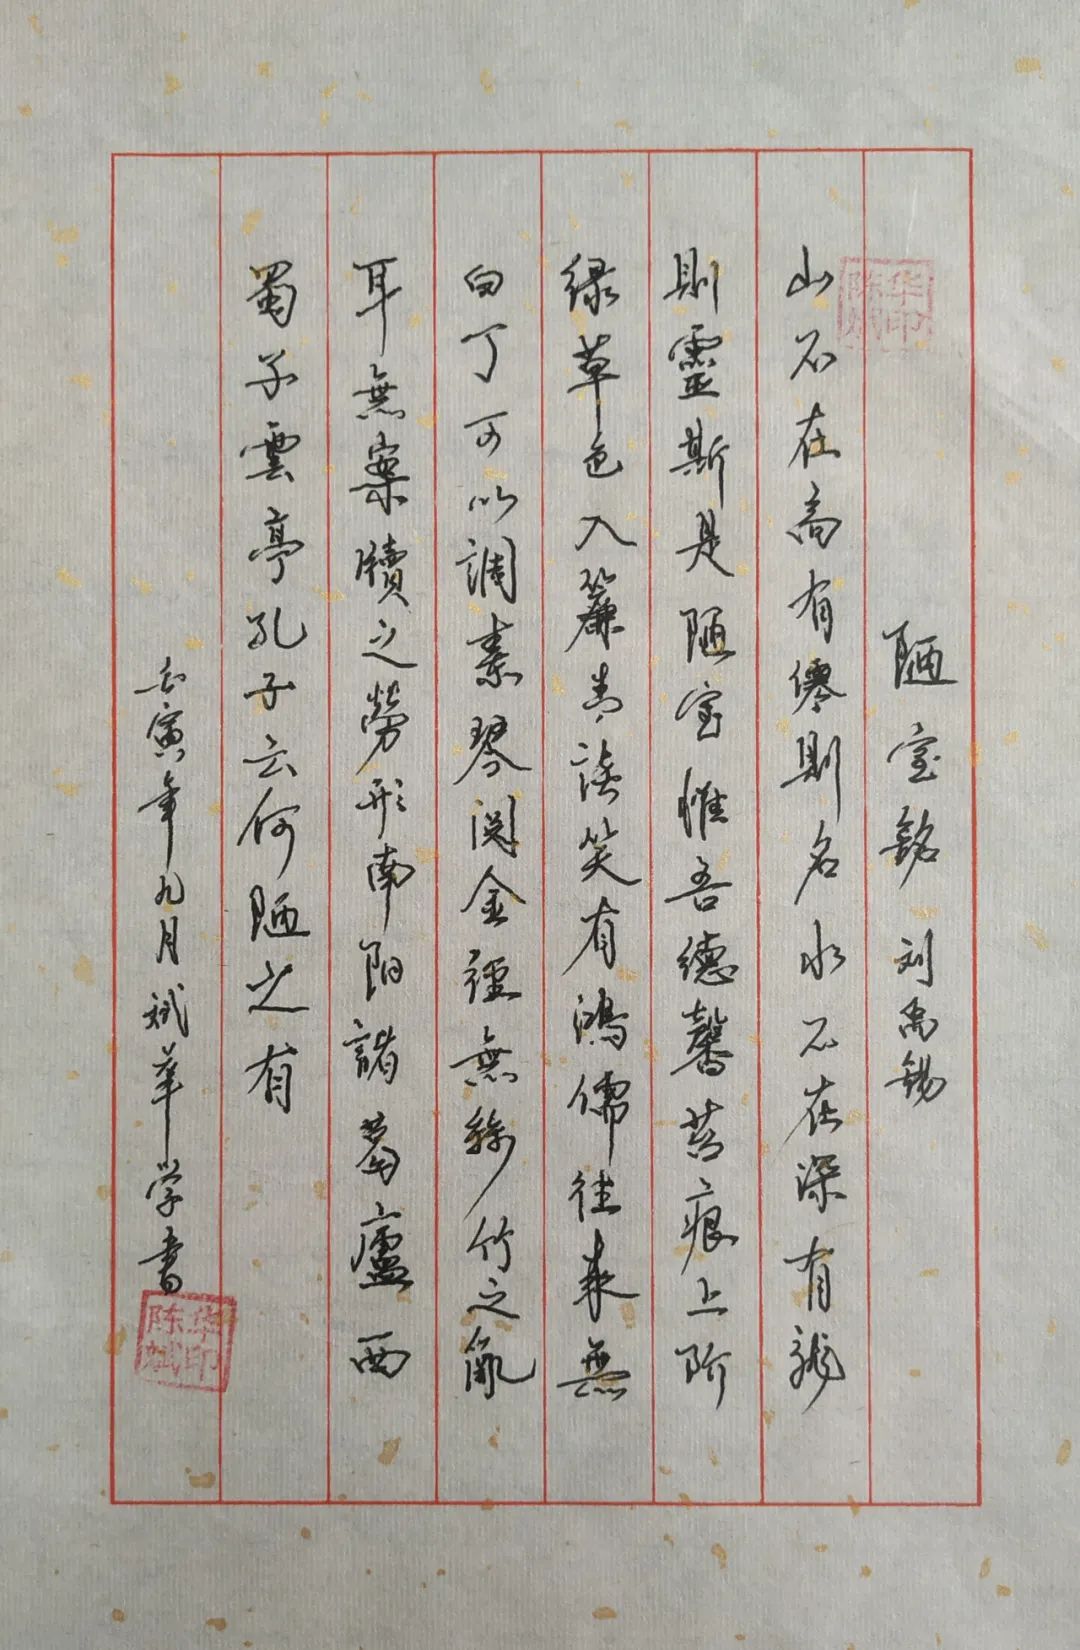 陋室銘 刘禹錫
山不在高有僊則名水不在深有龍
則靈斯是陋室惟吾德馨苔痕上阶
绿草色入簾青談笑有鴻儒往来無
白丁可以調素琴閲金經無絲竹之亂
耳無案牘之勞形南阳諸葛廬西
蜀子雲亭孔子云何陋之有
壬寅年九月斌華学書
陈斌华印
陈斌华印